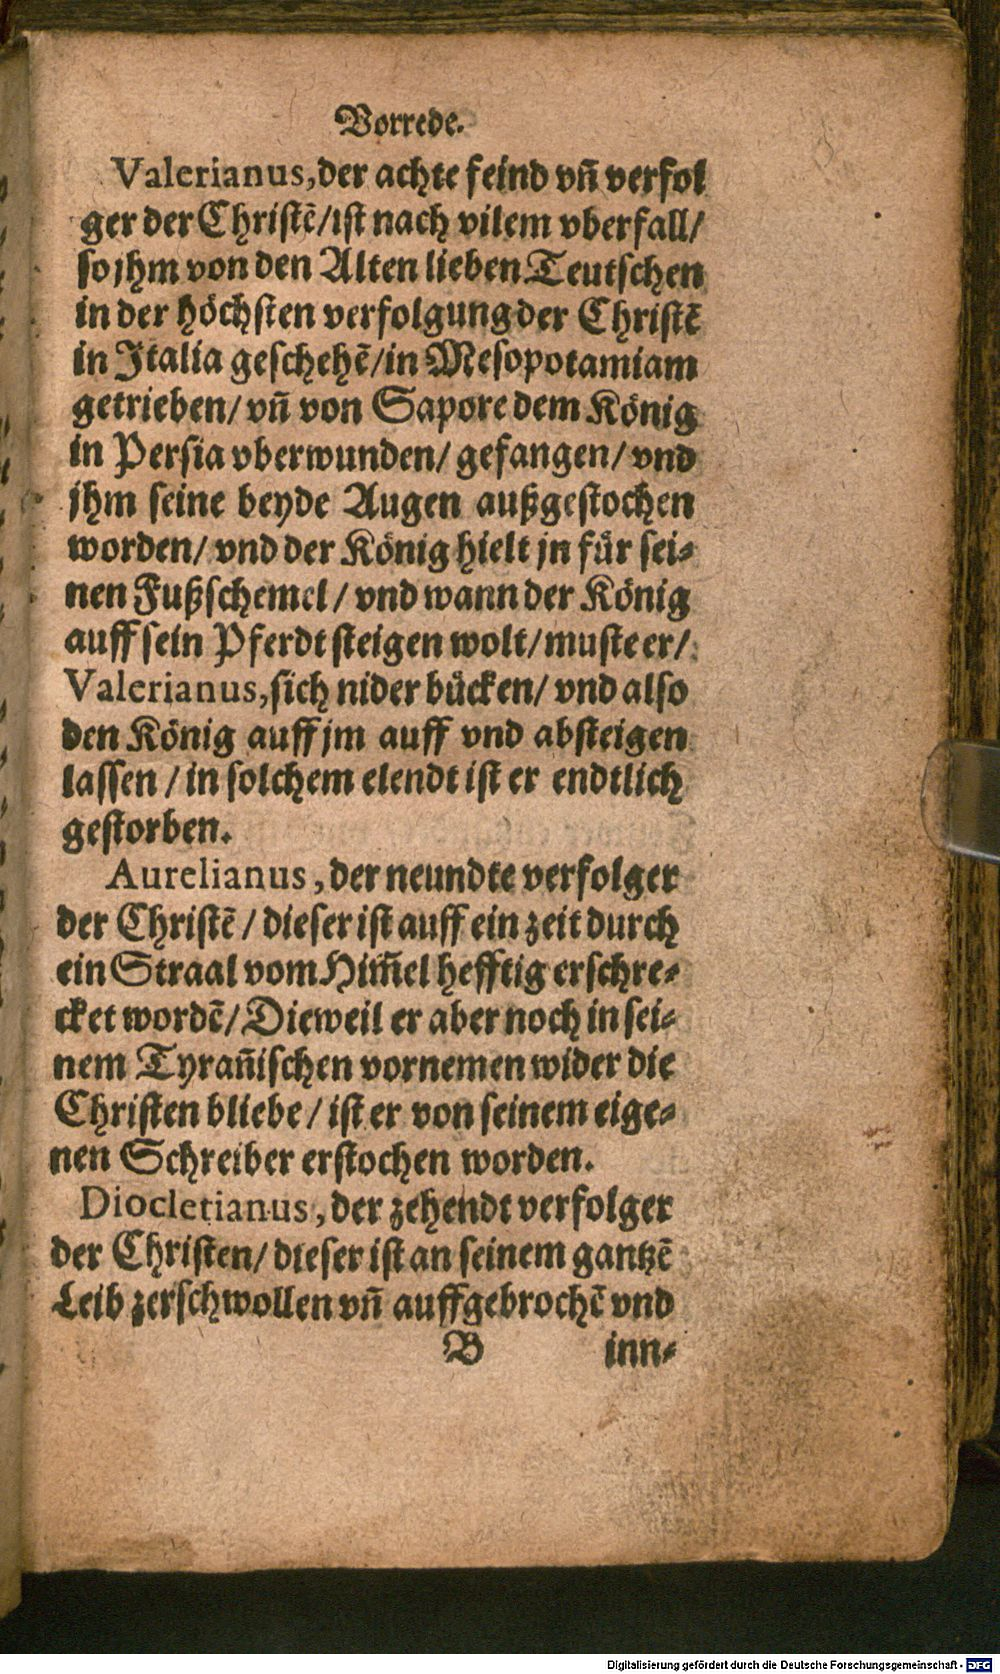 Vorrede.
Valerianus, der achte feind vñ verfol
ger der Christẽ/ ist nach vilem vberfall/
so jhm von den Alten lieben Teutschen
in der höchsten verfolgung der Christẽ
in Italia geschehẽ/ in Mesopotamiam
getrieben/ vñ von Sapore dem König
in Persia vberwunden/ gefangen/ vnd
jhm seine beyde Augen außgestochen
worden/ vnd der König hielt jn für sei-
nen Fußschemel/ vnd wann der König
auff sein Pferdt steigen wolt/ muste er/
Valerianus, sich nider bücken/ vnd also
den König auff jm auff vnd absteigen
lassen/ in solchem elendt ist er endtlich
gestorben.
Aurelianus, der neundte verfolger
der Christẽ/ dieser ist auff ein zeit durch
ein Straal vom Him̃el hefftig erschre-
cket wordẽ/ Dieweil er aber noch in sei-
nem Tyrañischen vornemen wider die
Christen bliebe/ ist er von seinem eige-
nen Schreiber erstochen worden.
Diocletianus, der zehendt verfolger
der Christen/ dieser ist an seinem gantzẽ
Leib zerschwollen vñ auffgebrochẽ vnd
B inn-
Digitalisierung gefördert durch die Deutsche Forschungsgemeinschaft - DFG